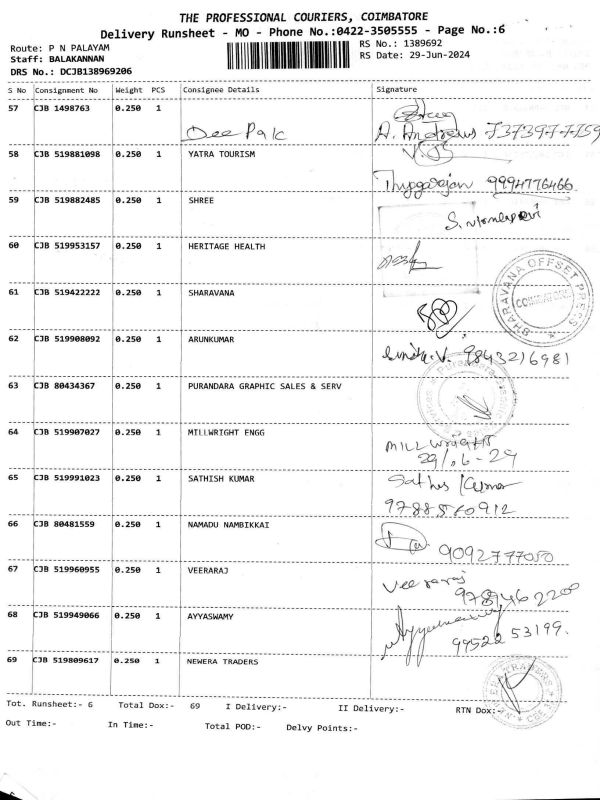 THE PROFESSIONAL COURIERS, COIMBATORE
Delivery Runsheet - MO - Phone No.:0422-3505555 - Page No.:6
Route: P N PALAYAM
RS No.: 1389692
Staff: BALAKANNAN
RS Date: 29-Jun-2024
DRS No.: DCJB138969206
S No Consignment No Weight PCS Consignee Details Signature
57 CJB 1498763 0.250 1
Deepak A. Andrews
58 CJB 519881098 0.250 1 YATRA TOURISM
Thyagarajan 9994776466
59 CJB 519882485 0.250 1 SHREE
60 CJB 519953157 0.250 1 HERITAGE HEALTH
61 CJB 519422222 0.250 1 SHARAVANA
SHARAVANA OFFSET PRESS
COIMBATORE
62 CJB 519908092 0.250 1 ARUNKUMAR
9843216981
63 CJB 80434367 0.250 1 PURANDARA GRAPHIC SALES & SERV
64 CJB 519907027 0.250 1 MILLWRIGHT ENGG
MILLWRIGHT
29/06-24
65 CJB 519991023 0.250 1 SATHISH KUMAR
Sathis Kumar
9788560912
66 CJB 80481559 0.250 1 NAMADU NAMBIKKAI
9092777050
67 CJB 519960955 0.250 1 VEERARAJ
Veeraraj
9789462200
68 CJB 519949066 0.250 1 AYYASWAMY
Ayyaswamy
99522 53199.
69 CJB 519809617 0.250 1 NEWERA TRADERS
Tot. Runsheet:- 6 Total Dox:- 69 I Delivery:- II Delivery:- RTN Dox:-
Out Time:- In Time:- Total POD:- Delvy Points:-